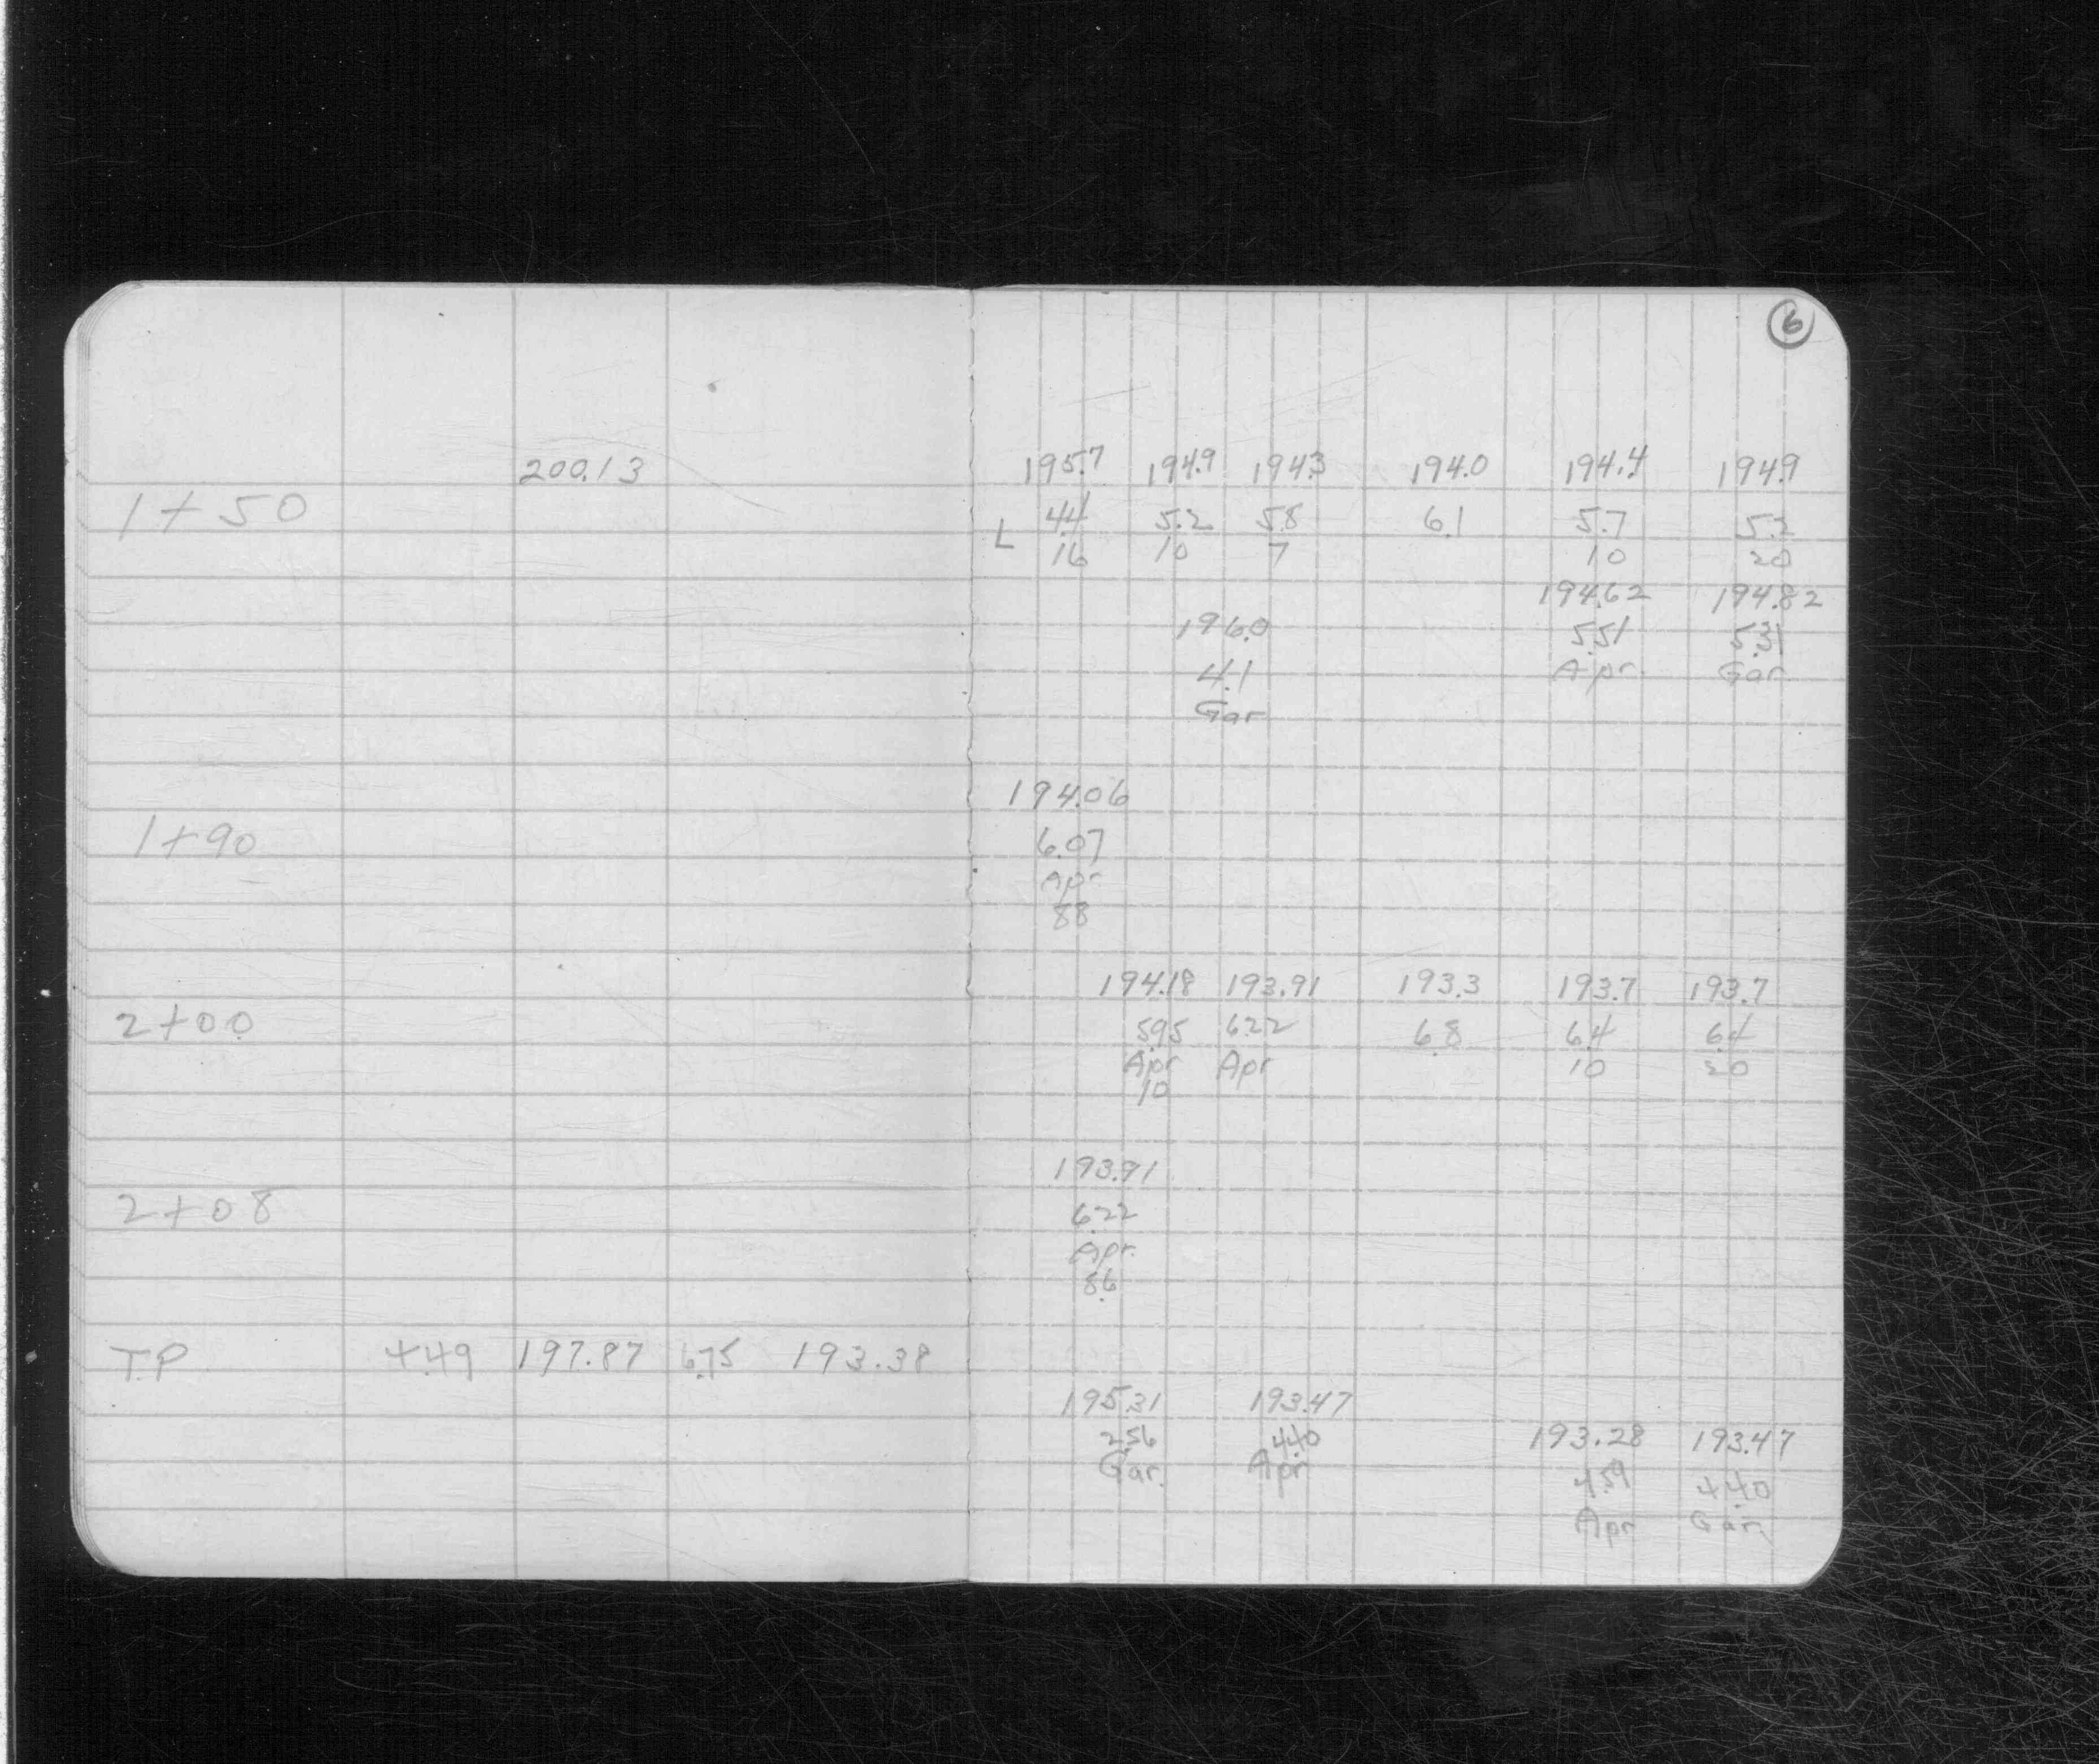 6
200.13 195.7 194.9 194.3 194.0 194.4 194.9
1+50 4.4 5.2 5.8 6.1 5.7 5.2
L 16 10 7 10 20
194.62 194.82
196.0 5.51 5.31
4.1 Apr. Gar
Gar
194.06
1+90 6.07
Apr
88
194.18 193.91 193.3 193.7 193.7
2+00 5.95 6.22 6.8 6.4 6.4
Apr Apr 10 20
10
193.91
2+08 6.22
Apr.
86
T.P 4.49 197.87 6.75 193.38
195.31 193.47
2.56 4.40 193.28 193.47
Gar. Apr 4.59 4.40
Apr Gar.